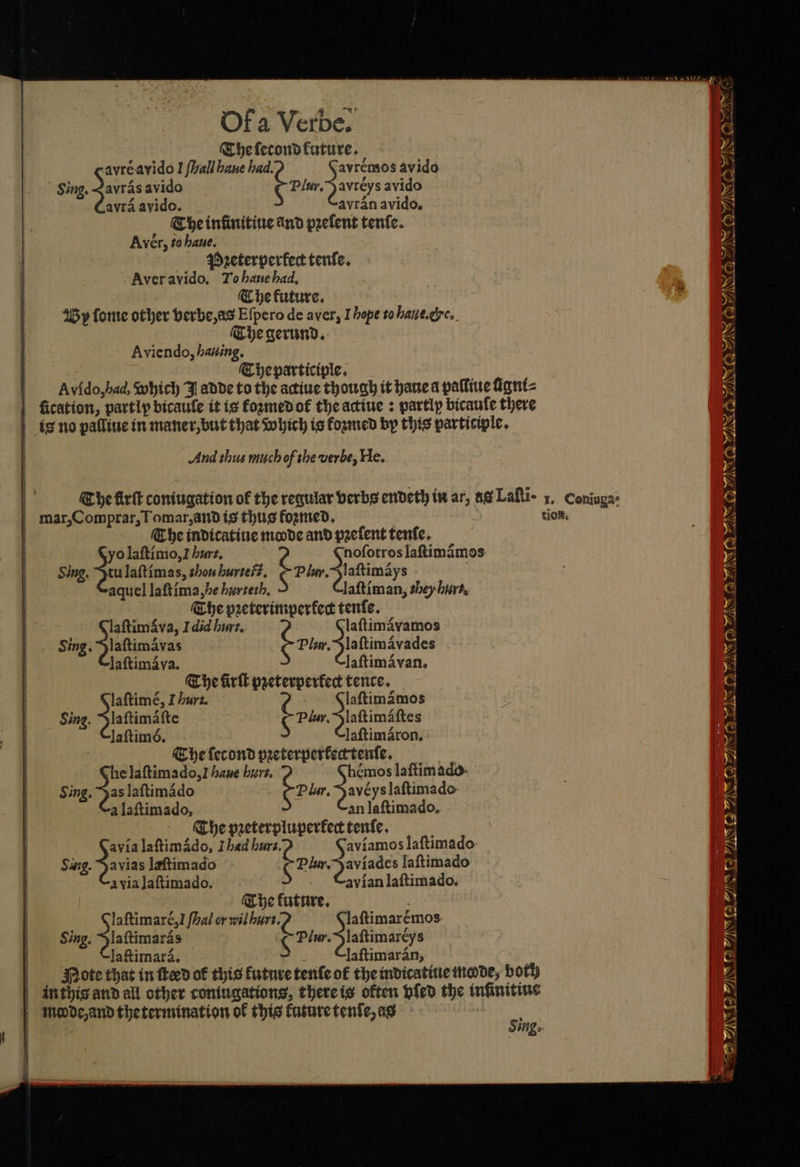 Of a Verbe.
The second future.
avré avido I shall haue had. avrémos avido
Sing. avrás avido Plur. avréys avido
avrá avido. avrán avido.
The infinitiue and present tense.
Avér, to haue.
Preterperfect tense.
Aver avido. To haue had.
The future.
By some other verbe, as Espero de aver, I hope to haue. &c.
The gerund.
Aviendo, hauing.
The participle.
Avído, had, which I adde to the actiue though it haue a passiue signi-
fication, partly bicause it is formed of the actiue : partly bicause there
is no passiue in maner, but that which is formed by this participle.
And thus much of the verbe, He.
The first coniugation of the regular verbs endeth in ar, as Lasti- 1. Coniuga-
mar, Comprar, Tomar, and is thus formed. tion.
The indicatiue moode and present tense.
yo lastímo, I hurt. nosotros lastimámos
Sing. tu lastímas, thou hurtest. Plur. lastimáys
aquel lastíma, he hurteth. lastíman, they hurt.
The preterimperfect tense.
lastimáva, I did hurt. lastimávamos
Sing. lastimávas Plur. lastimávades
lastimáva. lastimávan.
The first preterperfect tence.
lastimé, I hurt. lastimámos
Sing. lastimáste Plur. lastimástes
lastimó. lastimáron.
The second preterperfect tense.
he lastimado, I haue hurt. hémos lastimado
Sing. as lastimádo Plur. avéys lastimado
a lastimado, an lastimado.
The preterpluperfect tense.
avia lastimádo, I had hurt. avíamos lastimado
Sing. avias lastimado Plur. avíades lastimado
avia lastimado. avían lastimado.
The future.
lastimaré, I shal or wil hurt. lastimarémos
Sing. lastimarás Plur. lastimaréys
lastimará. lastimarán,
Note that in steed of this future tense of the indicatiue moode, both
in this and all other coniugations, there is often vsed the infinitiue
moode, and the termination of this future tense, as
Sing.